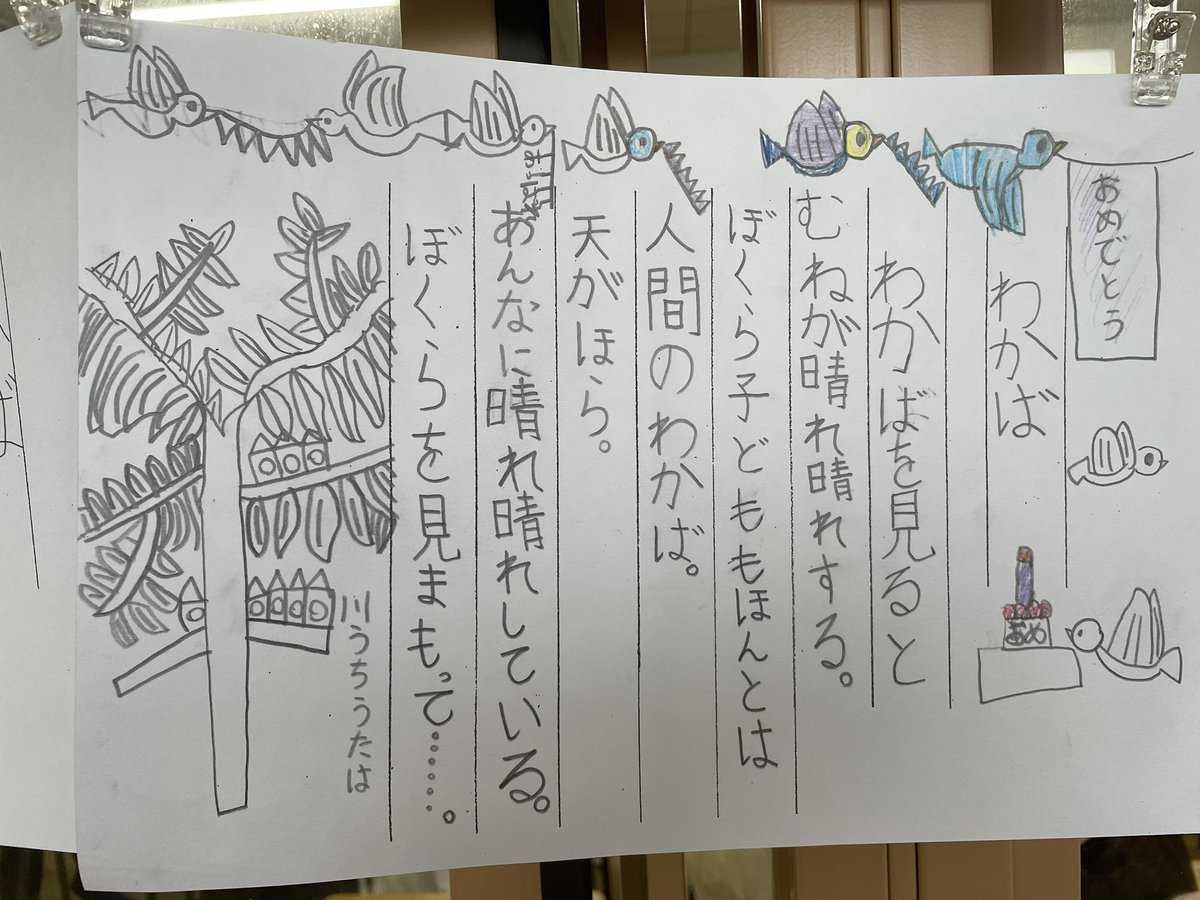 おめでとう
わかば
わかばを見ると
むねが晴れ晴れする。
ぼくら子どももほんとは
人間のわかば。
天がほら。
あんなに晴れ晴れしている。
ぼくらを見まもって……。
川うちうたは
あめ